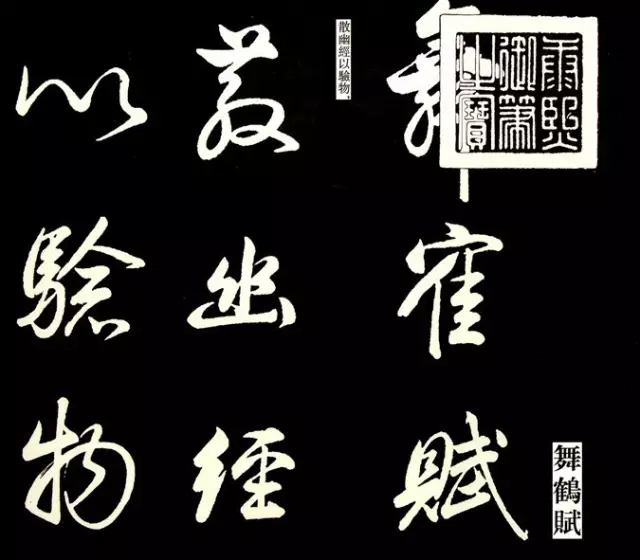 康熙御筆之寶
舞寉賦
舞鶴賦
散幽經以驗物，
散幽經
以騐物